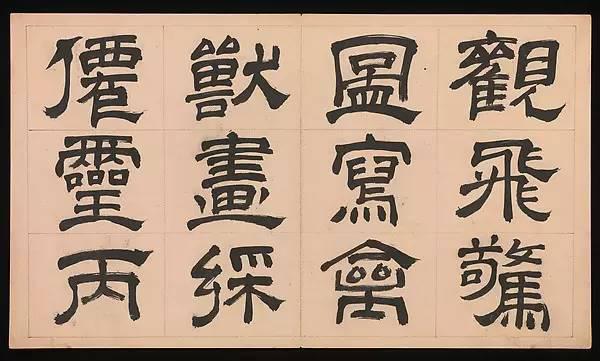 觀飛驚
圖寫禽
獸畫綵
僊靈丙